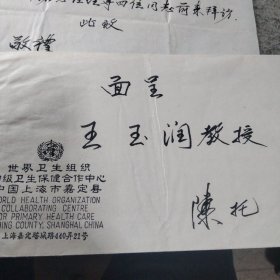 此致
敬礼
面呈
王玉润教授
陳托
世界卫生组织
初级卫生保健合作中心
中国上海市嘉定县
WORLD HEALTH ORGANIZATION
COLLABORATING CENTRE
FOR PRIMARY HEALTH CARE
JIADING COUNTY, SHANGHAI CHINA
上海嘉定塔城路440弄21号